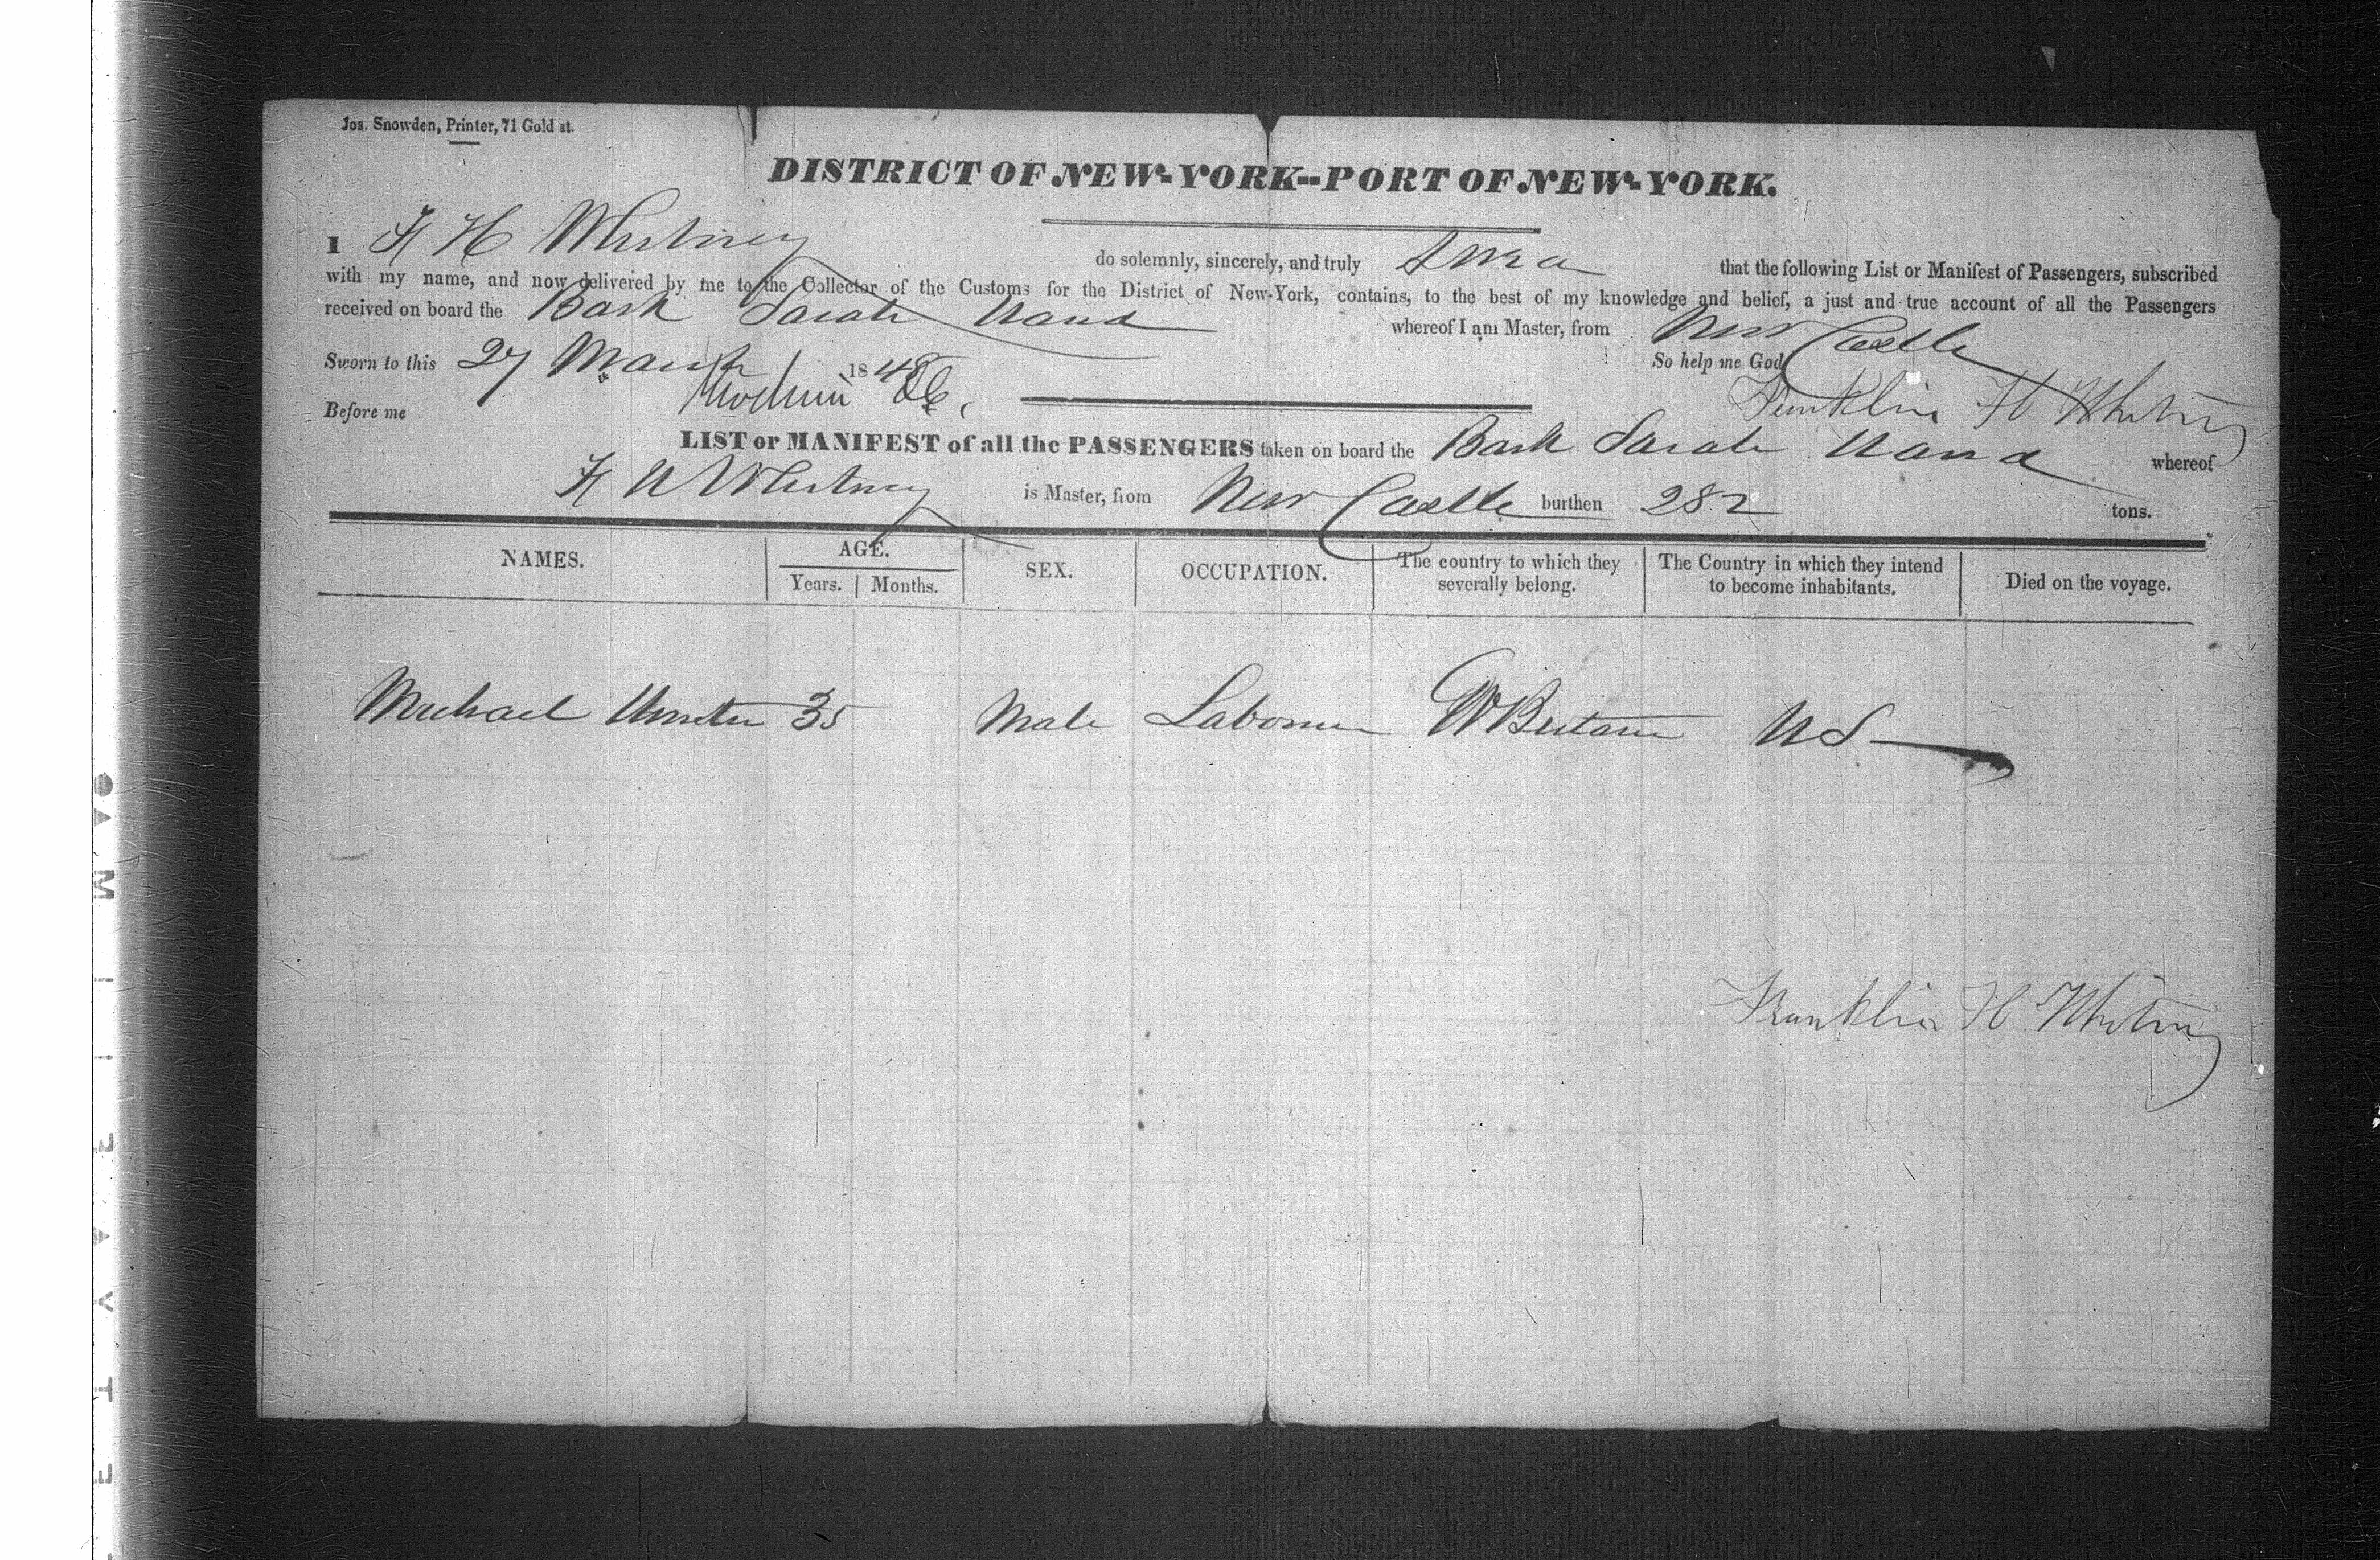 Jos. Snowden, Printer, 71 Gold st.
DISTRICT OF NEW-YORK--PORT OF NEW-YORK.
I F H Whitney do solemnly, sincerely, and truly swear that the following List or Manifest of Passengers, subscribed
with my name, and now delivered by me to the Collector of the Customs for the District of New-York, contains, to the best of my knowledge and belief, a just and true account of all the Passengers
received on board the Bark Sarah Hand whereof I am Master, from New Castle
Sworn to this 27 March 1848 So help me God
Franklin H Whitney
Before me
LIST or MANIFEST of all the PASSENGERS taken on board the Bark Sarah Hand whereof
F H Whitney is Master, from New Castle burthen 282 tons.
NAMES. AGE. SEX. OCCUPATION. The country to which they severally belong. The Country in which they intend to become inhabitants. Died on the voyage.
Years. Months.
Michael 35 Male Labourer G Britain U S
Franklin H Whitney